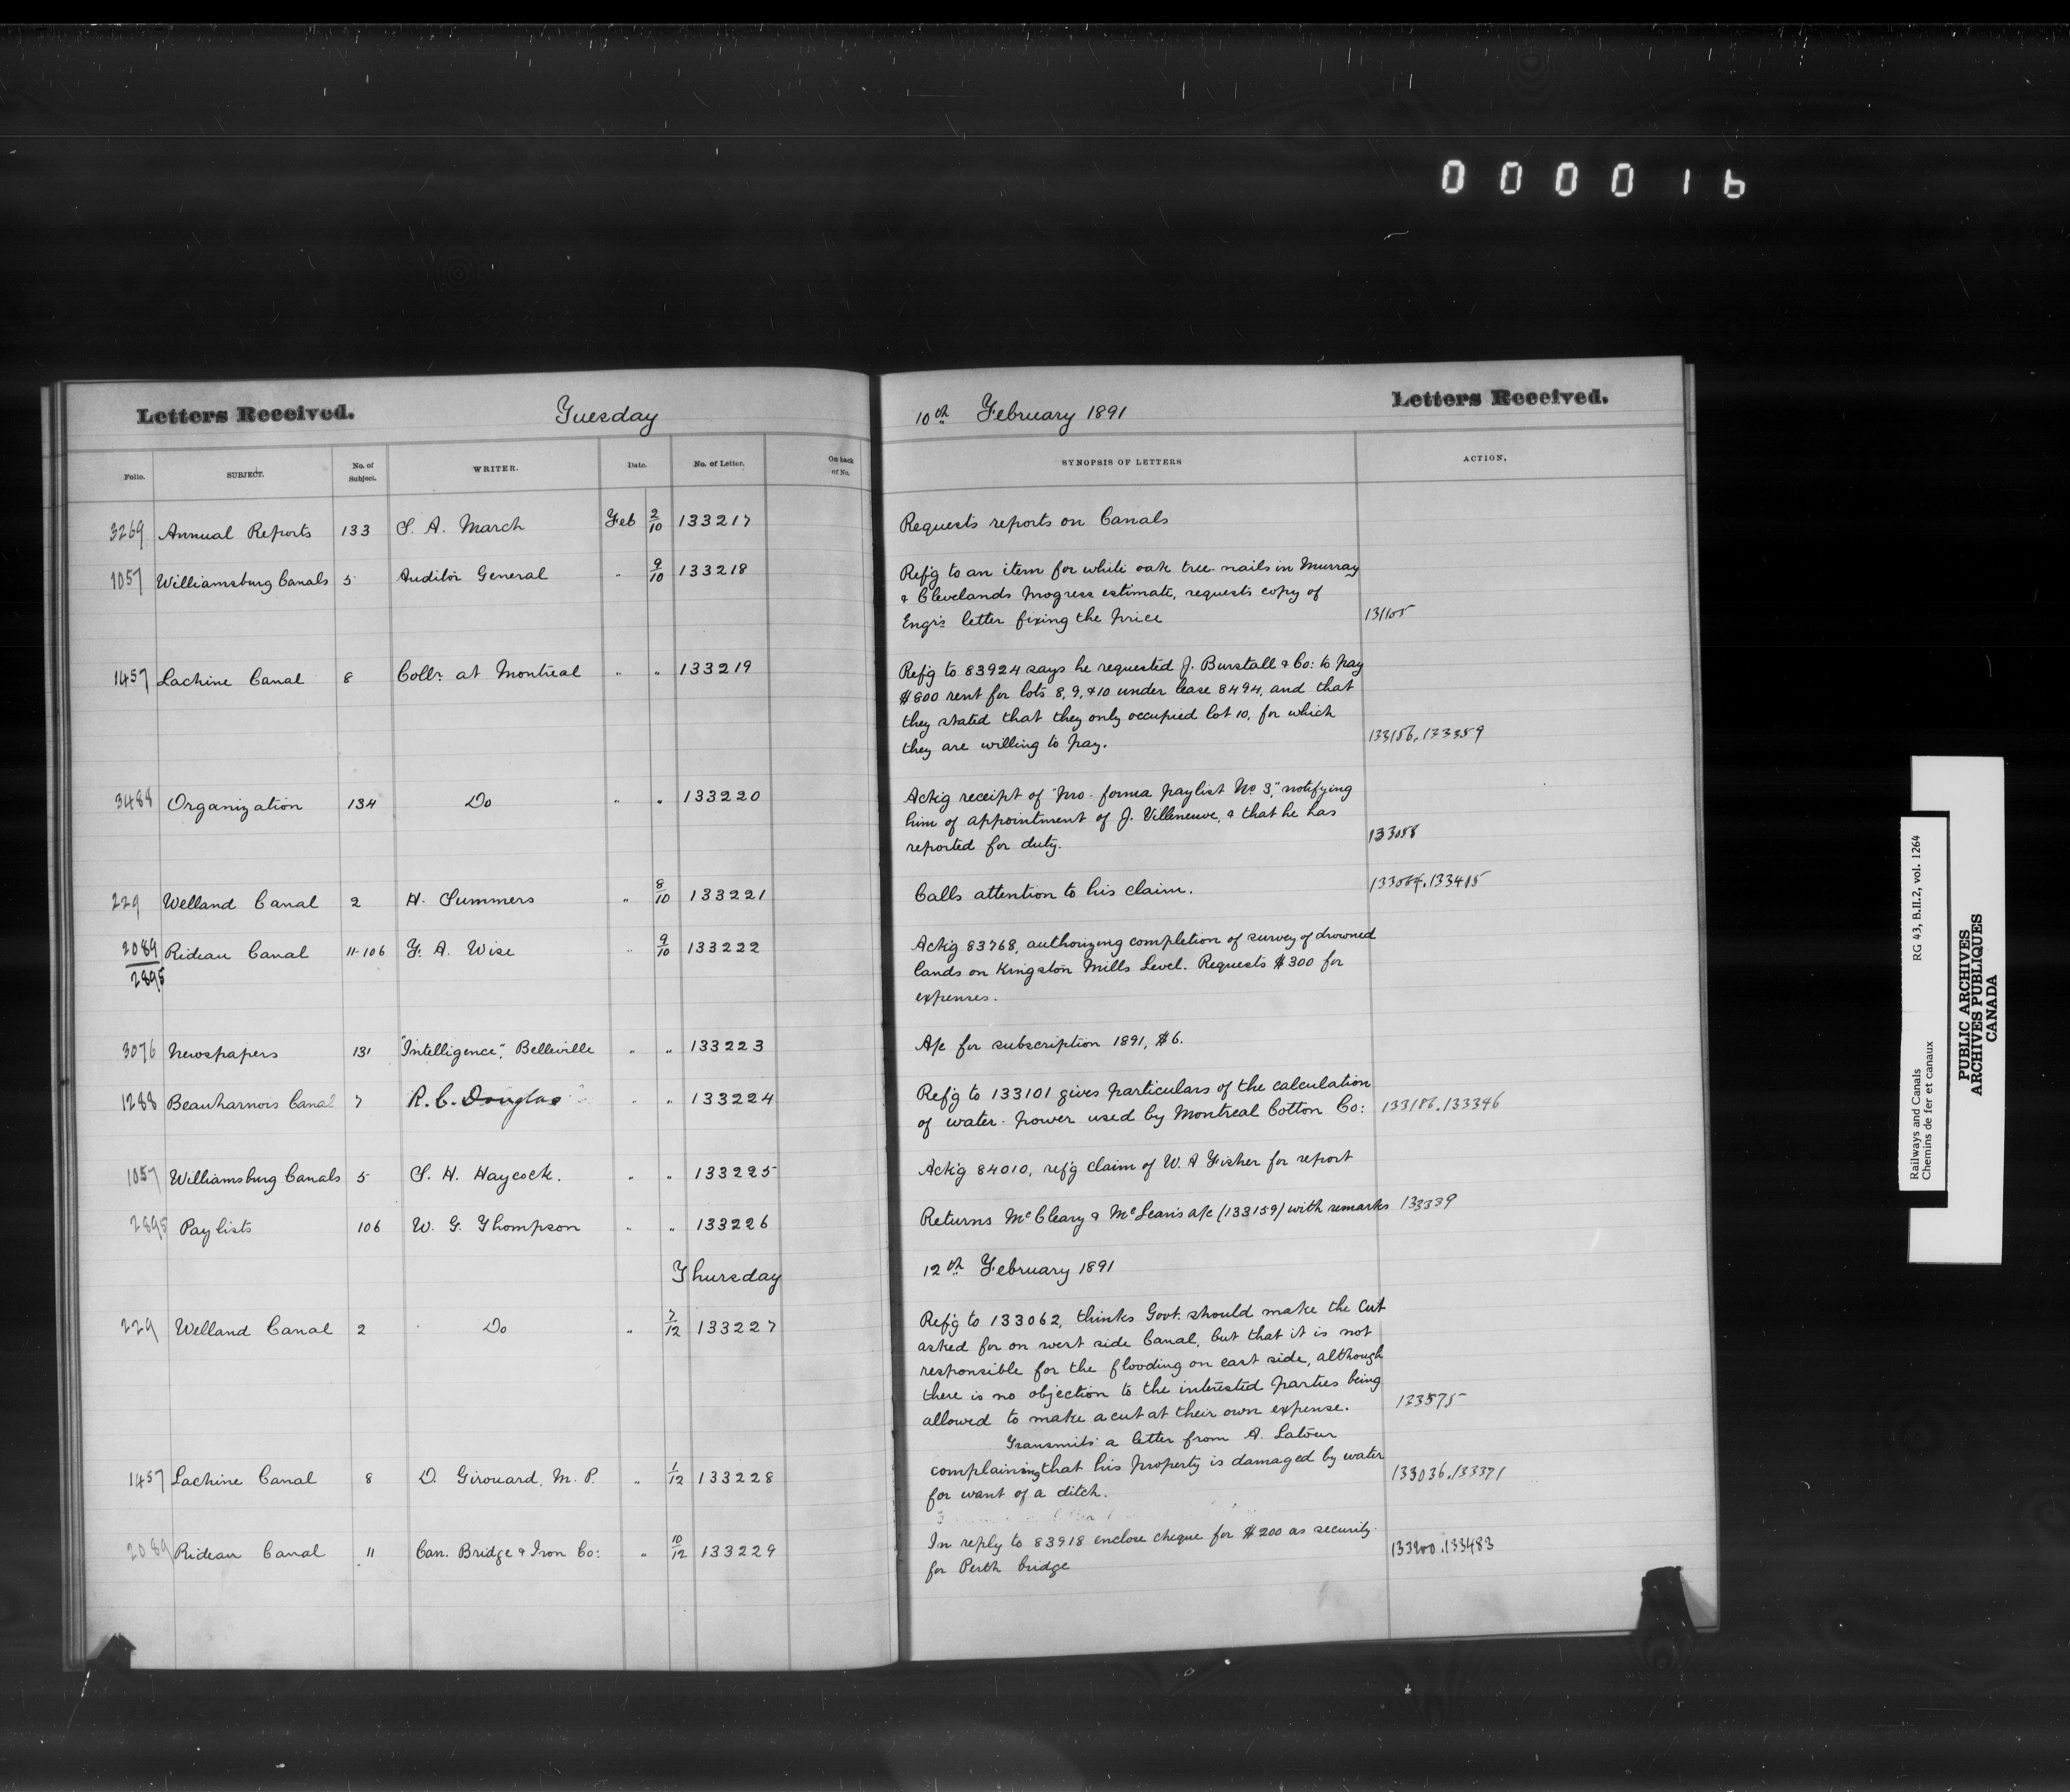 000016
Letters Received. Tuesday 10th February 1891 Letters Received.
Folio. SUBJECT. No. of Subject. WRITER. Date. No. of Letter. On back of No. SYNOPSIS OF LETTERS ACTION.
3269 Annual Reports 133 S. A. March Feb 2/10 133217 Requests reports on Canals
1057 Williamsburg Canals 5 Auditor General " 9/10 133218 Ref'g to an item for white oak tree-nails in Murray
& Clevelands progress estimate, requests copy of
Engr's letter fixing the price 131105
1457 Lachine Canal 8 Collr. at Montreal " " 133219 Ref'g to 83924 says he requested J. Burstall & Co: to pay
$800 rent for lots 8, 9, & 10 under lease 8494, and that
they stated that they only occupied lot 10, for which
they are willing to pay. 133156.133359
3488 Organization 134 Do " " 133220 Ack'g receipt of "pro-forma paylist No 3," notifying
him of appointment of J. Villeneuve, & that he has
reported for duty. 133058
229 Welland Canal 2 H. Summers " 8/10 133221 Calls attention to his claim. 133064.133415
2089 Rideau Canal 11-106 F. A. Wise " 9/10 133222 Ack'g 83768, authorizing completion of survey of drowned
2895 lands on Kingston Mills Level. Requests $300 for
expenses.
3076 Newspapers 131 "Intelligence", Belleville " " 133223 A/c for subscription 1891, $6.
1288 Beauharnois Canal 7 R. C. Douglas " " 133224 Ref'g to 133101 gives particulars of the calculation
of water-power used by Montreal Cotton Co: 133186.133346
1057 Williamsburg Canals 5 S. H. Haycock. " " 133225 Ack'g 84010, ref'g claim of W. A Fisher for report
2895 Paylists 106 W. G. Thompson " " 133226 Returns McCleary & McLean's a/c (133159) with remarks 133339
Thursday 12th February 1891
229 Welland Canal 2 Do " 7/12 133227 Ref'g to 133062, thinks Govt. should make the cut
asked for on west side Canal, but that it is not
responsible for the flooding on east side, although
there is no objection to the interested parties being
allowed to make a cut at their own expense. 133575
Transmits a letter from A. Latour
1457 Lachine Canal 8 D. Girouard, M. P. " 1/12 133228 complaining that his property is damaged by water 133036.133371
for want of a ditch.
2089 Rideau Canal 11 Can. Bridge & Iron Co: " 10/12 133229 In reply to 83918 enclose cheque for $200 as security
for Perth bridge 133200.133483
Railways and Canals RG 43, B.II.2, vol. 1264
Chemins de fer et canaux
PUBLIC ARCHIVES
ARCHIVES PUBLIQUES
CANADA